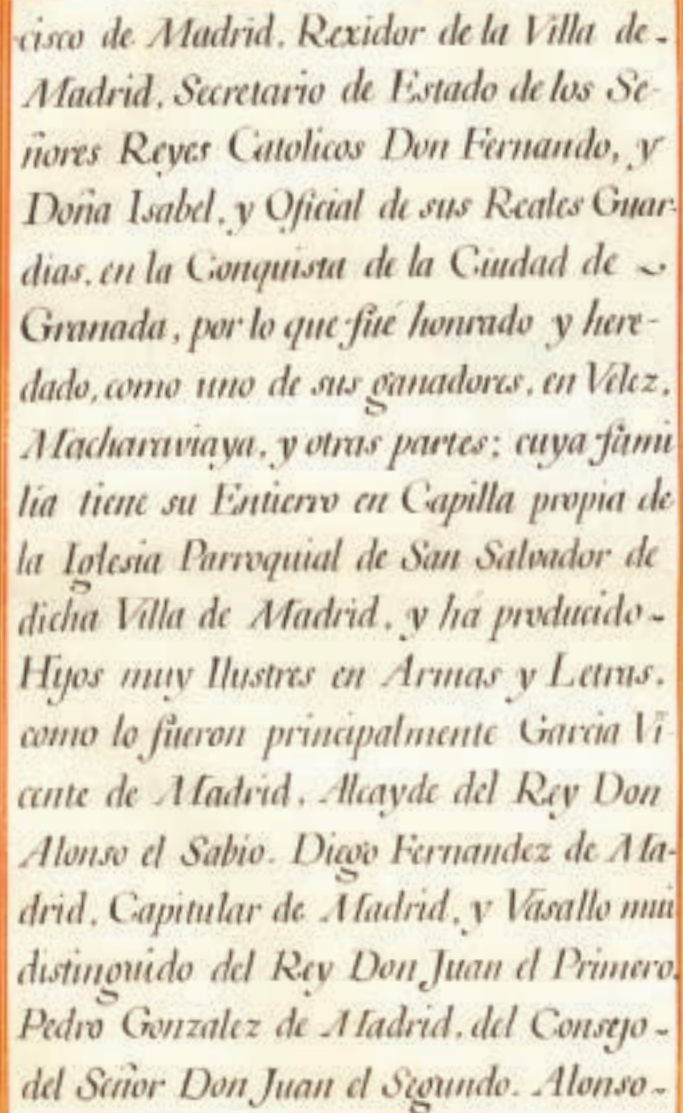 cisco de Madrid, Rexidor de la Villa de -
Madrid, Secretario de Estado de los Se-
ñores Reyes Catolicos Don Fernando, y
Doña Isabel, y Oficial de sus Reales Guar-
dias, en la Conquista de la Ciudad de ~
Granada, por lo que fué honrado y here-
dado, como uno de sus ganadores, en Velez,
Macharaviaya, y otras partes; cuya fami
lia tiene su Entierro en Capilla propia de
la Iglesia Parroquial de San Salvador de
dicha Villa de Madrid, y há producido -
Hijos muy Ilustres en Armas y Letras,
como lo fueron principalmente Garcia Vi-
cente de Madrid, Alcayde del Rey Don
Alonso el Sabio. Diego Fernandez de Ma-
drid, Capitular de Madrid, y Vasallo mui
distinguido del Rey Don Juan el Primero.
Pedro Gonzalez de Madrid, del Consejo -
del Señor Don Juan el Segundo. Alonso -